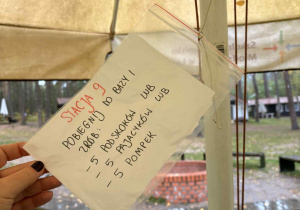 STACJA 9
POBIEGNIJ DO BAZY I
ZRÓB:
- 5 PODSKOKÓW LUB
- 5 PAJACYKÓW LUB
- 5 POMPEK